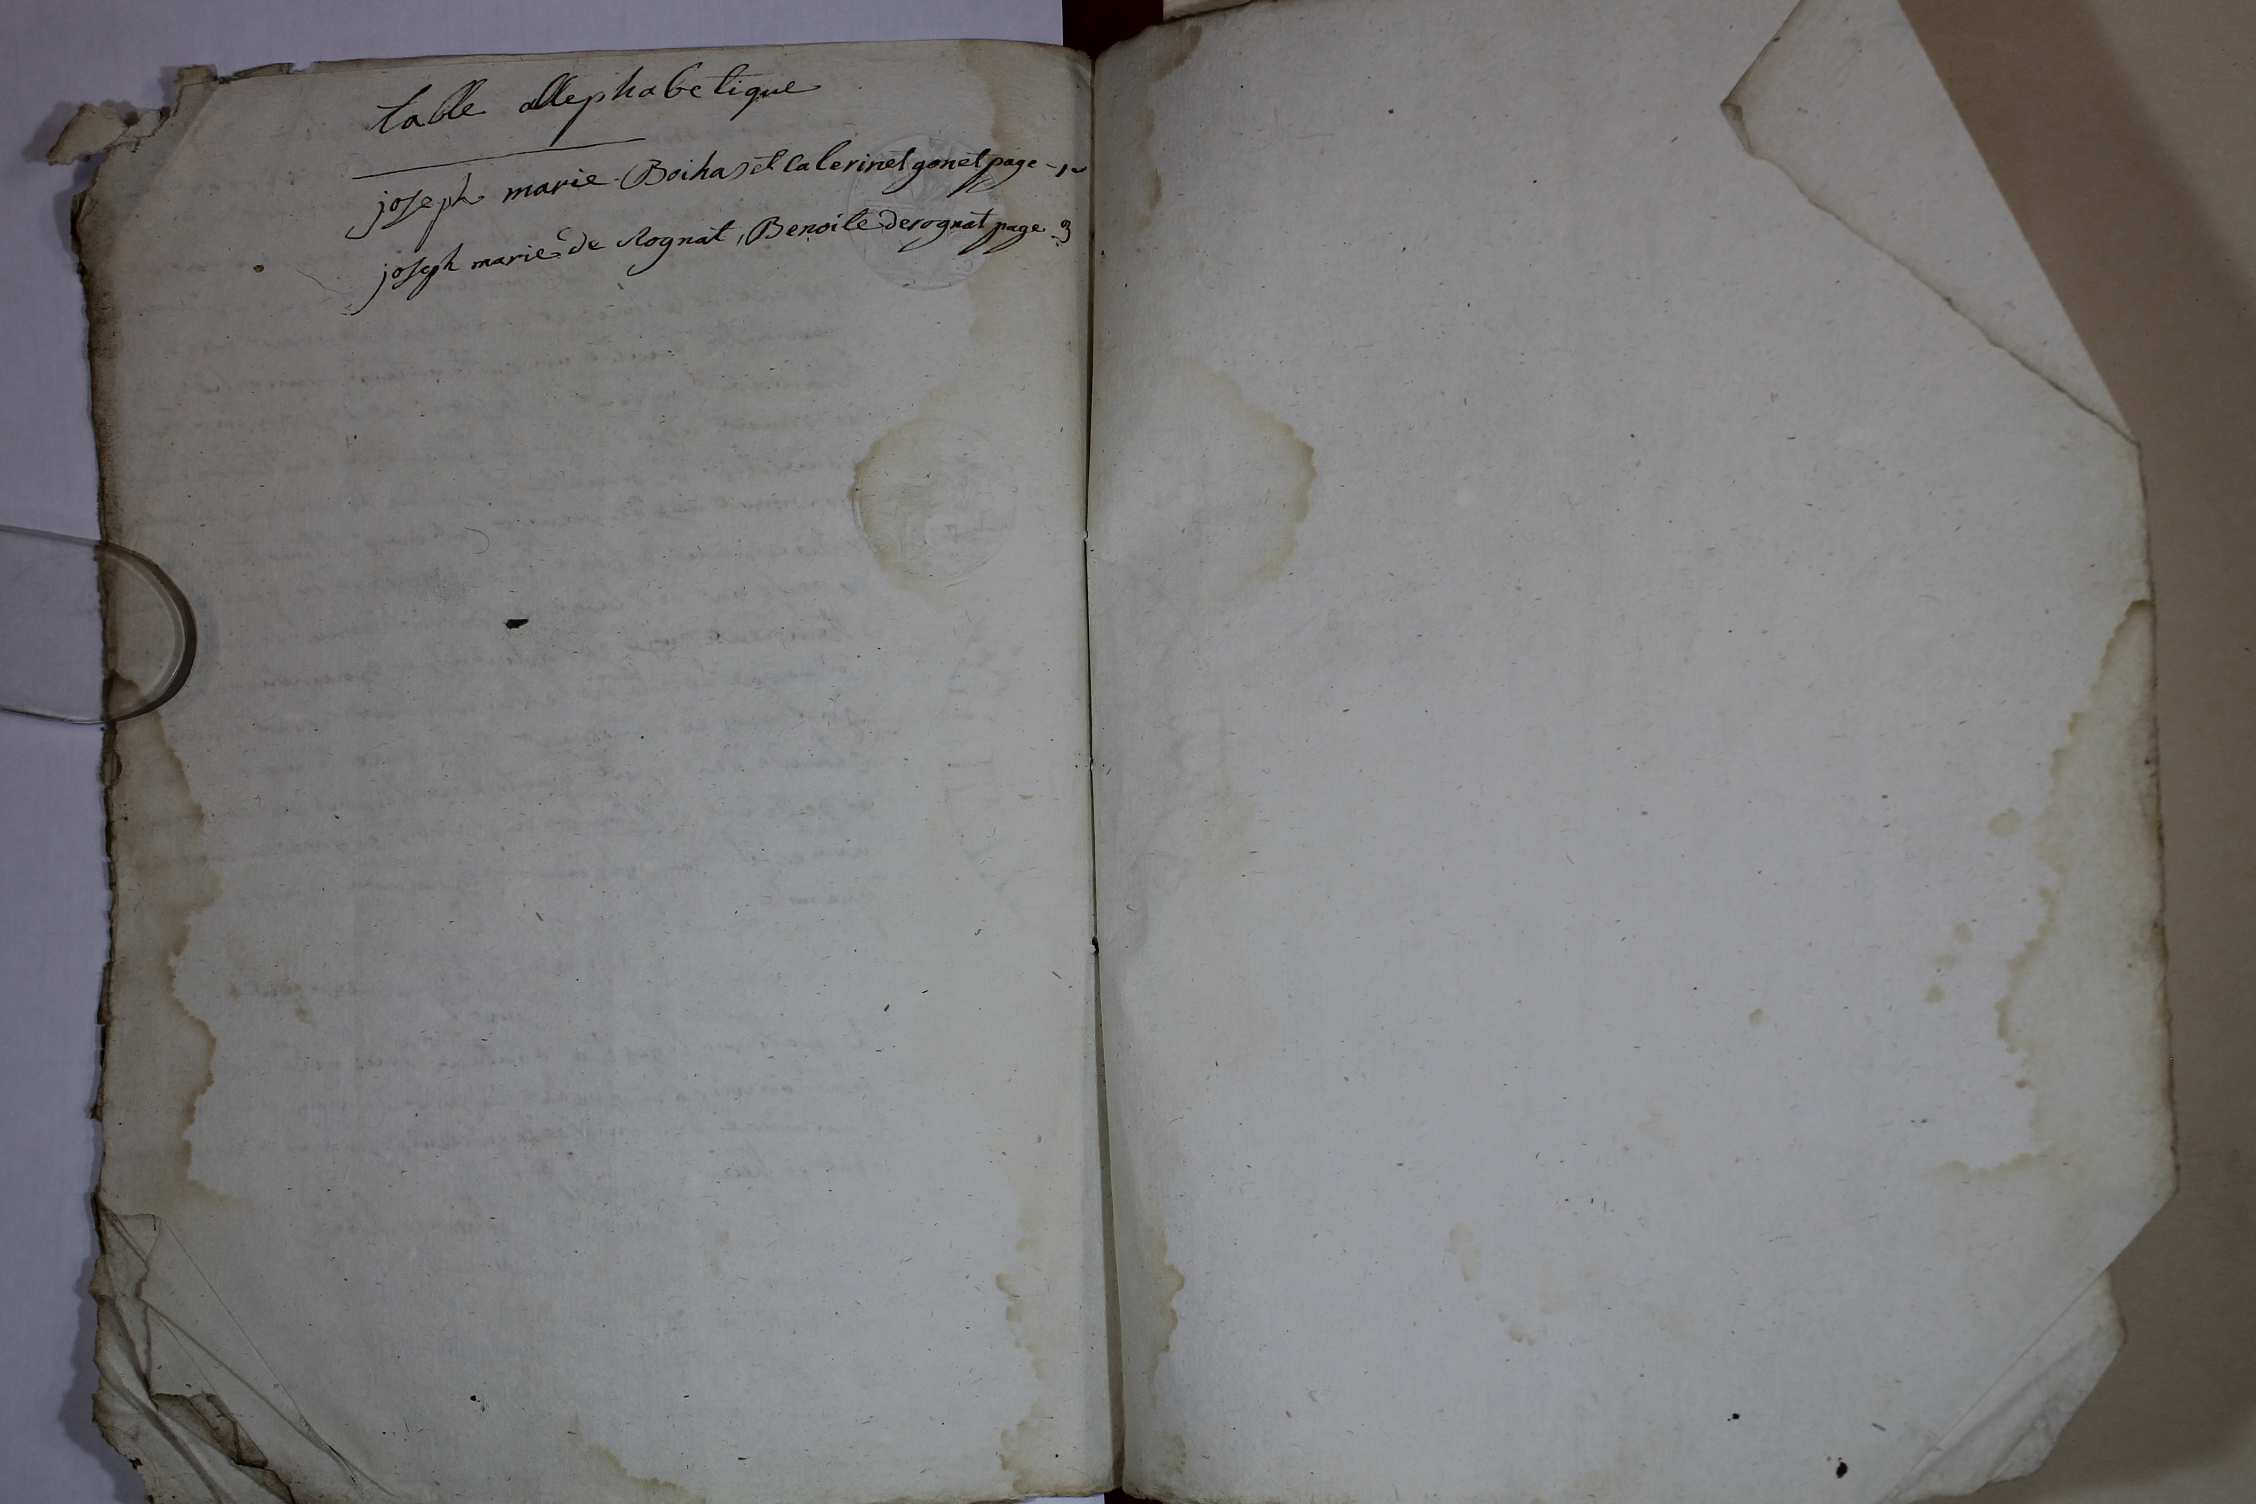 table allephabetique
joseph marie Boihas et Caterinet gonet page 1
joseph marie de Rognat, Benoite derognat page 3